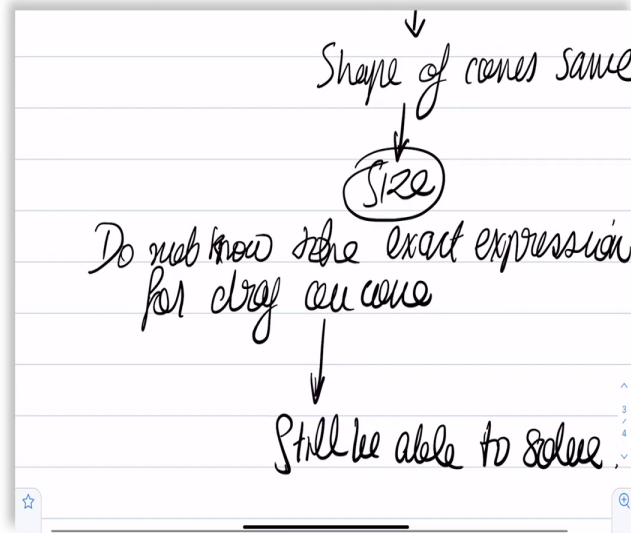 Shape of cones same
Size
Do not know the exact expression
for drag on cone
Still be able to solve.
3
/
4